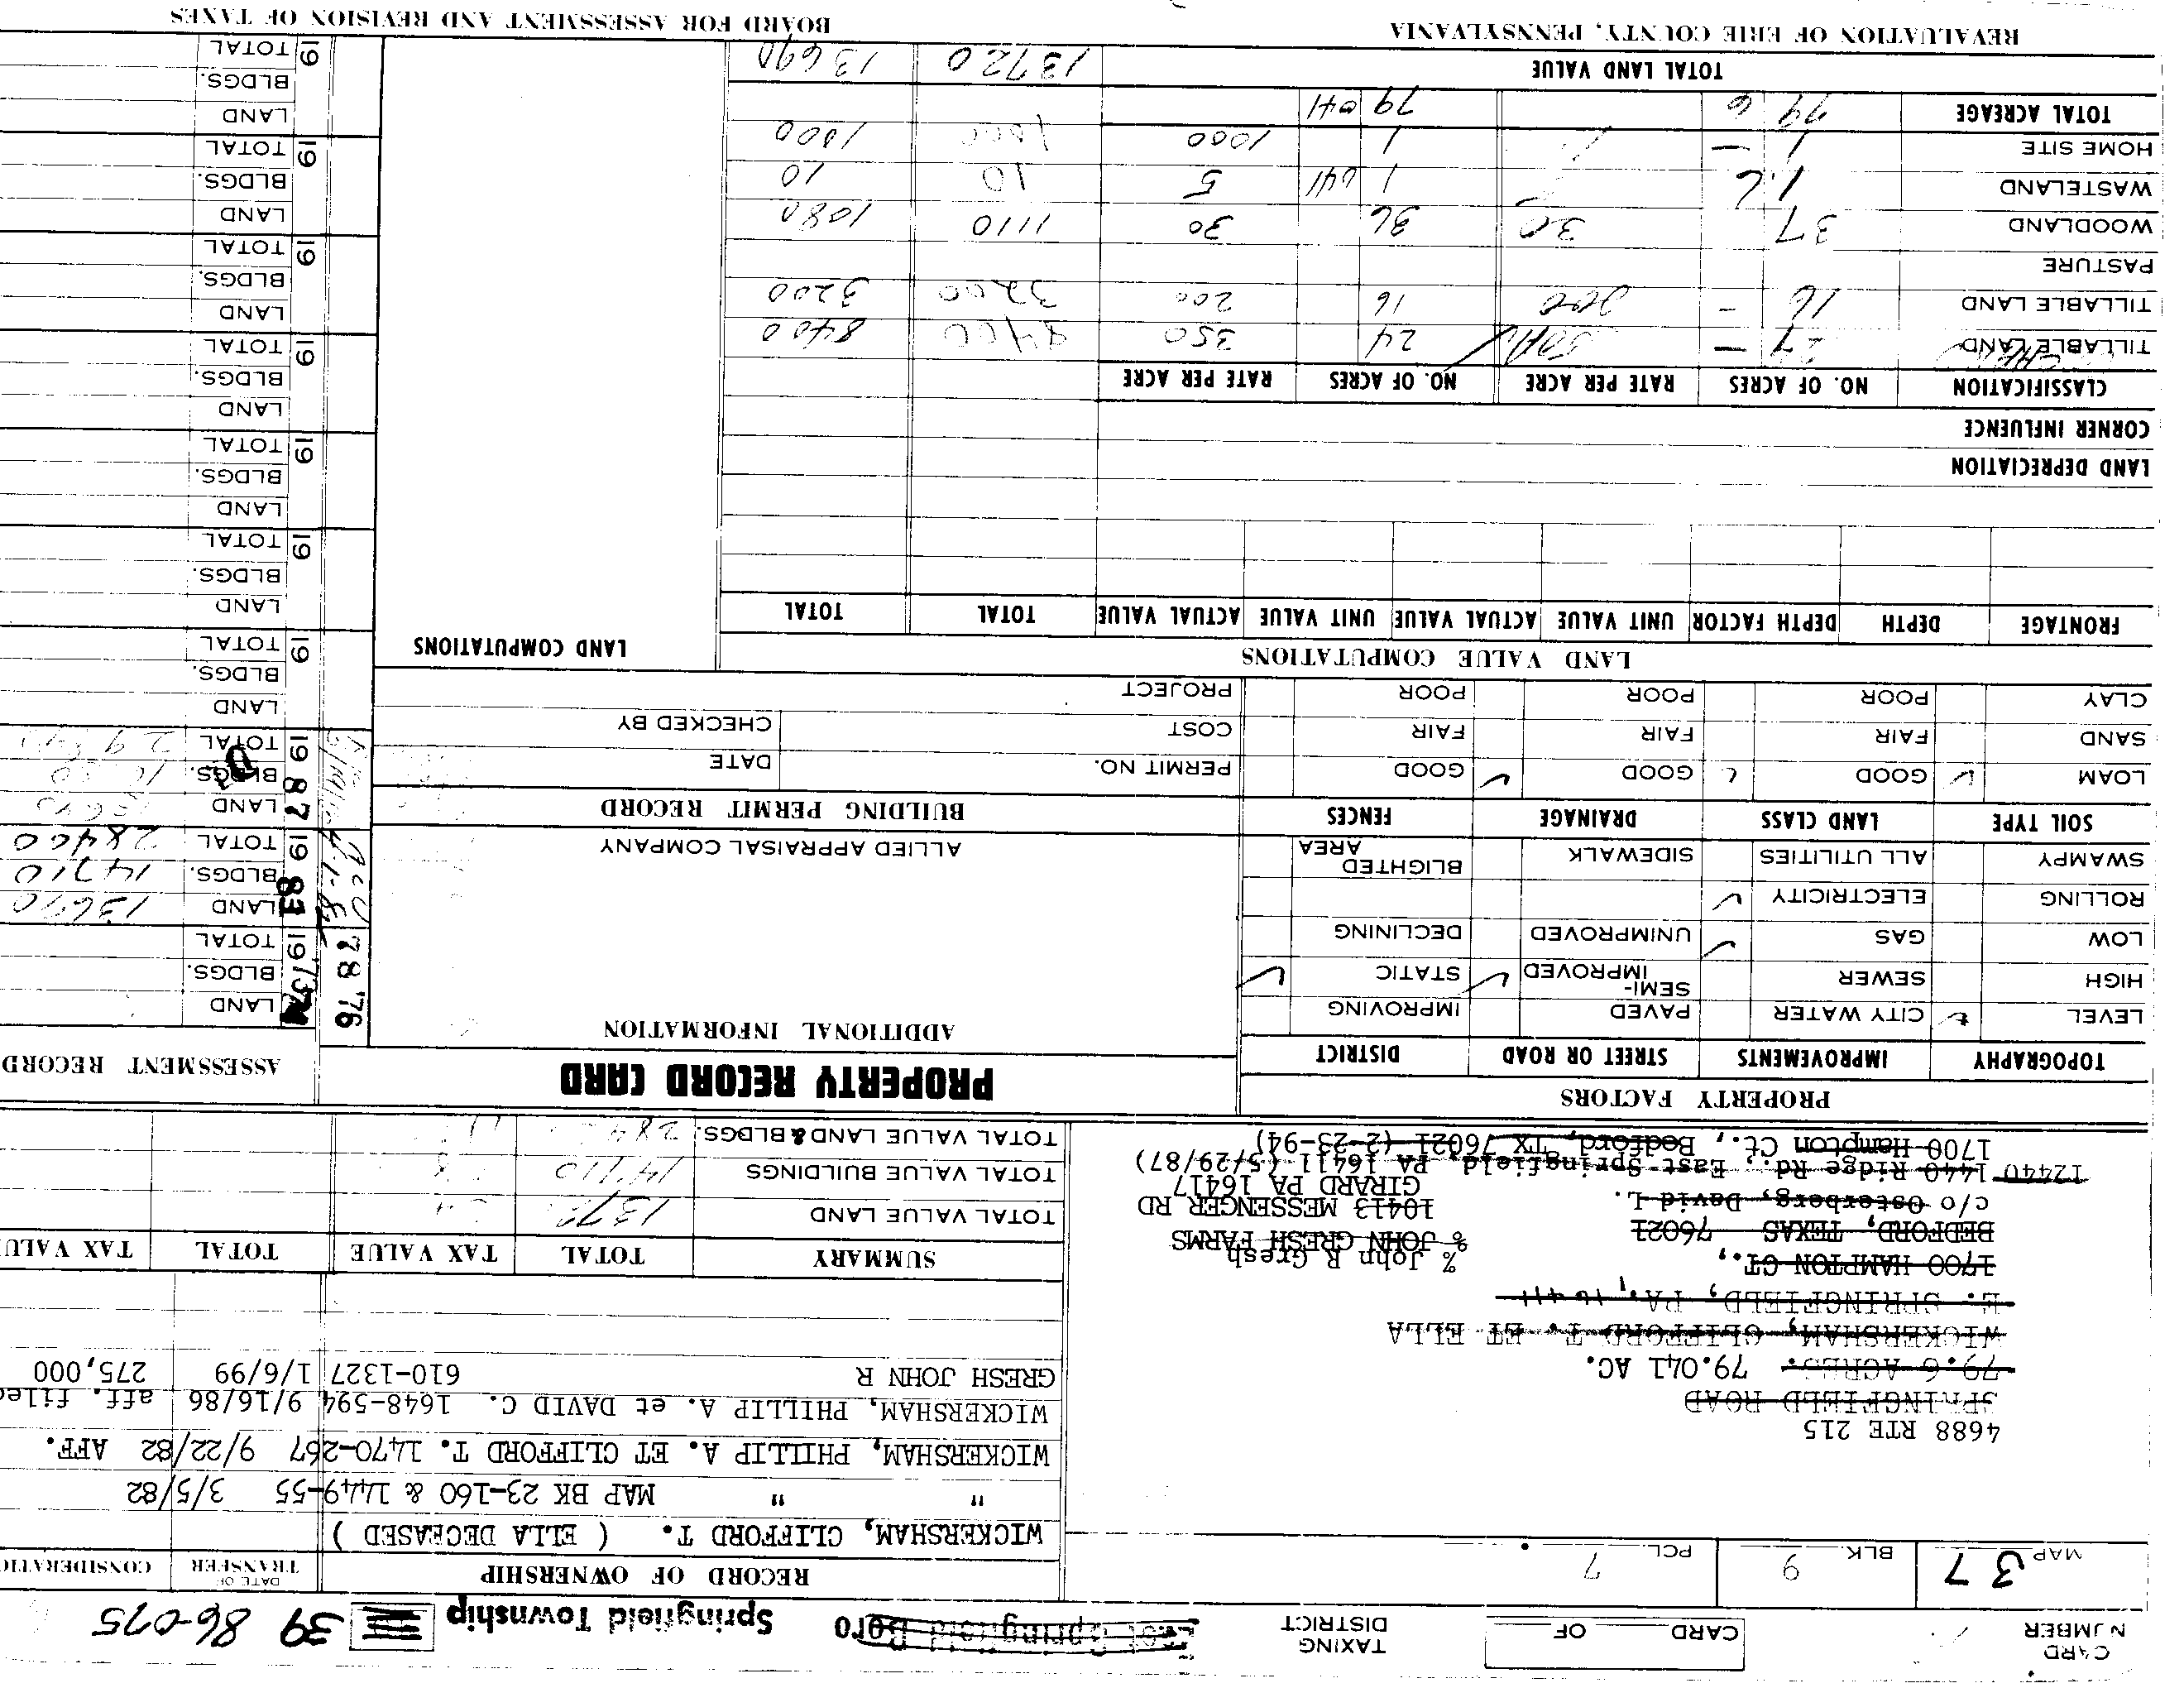 CARD NUMBER
CARD OF
TAXING DISTRICT
East Springfield Boro
Springfield Township
39 86-075
MAP 37
BLK. 9
PCL. 7
RECORD OF OWNERSHIP
DATE OF TRANSFER
CONSIDERATIO
WICKERSHAM, CLIFFORD T. ( ELLA DECEASED )
" " MAP BK 23-160 & 1449-55 3/5/82
WICKERSHAM, PHILLIP A. ET CLIFFORD T. 1470-267 9/22/82 AFF.
WICKERSHAM, PHILLIP A. et DAVID C. 1648-594 9/16/86 aff. filed
GRESH JOHN R 610-1327 1/6/99 275,000
4688 RTE 215
SPRINGFIELD ROAD
79.6 ACRES. 79.041 AC.
WICKERSHAM, CLIFFORD T. ET ELLA
E. SPRINGFIELD, PA. 16411
1700 HAMPTON CT.,
BEDFORD, TEXAS 76021
c/o Osterberg, David L.
12440 1440 Ridge Rd., East Springfield, PA 16411 (5/29/87)
1700 Hampton Ct., Bedford, TX 76021 (2-23-94)
% John R Gresh
% JOHN GRESH FARMS
10413 MESSENGER RD
GIRARD PA 16417
SUMMARY TOTAL TAX VALUE TOTAL TAX VALU
TOTAL VALUE LAND
TOTAL VALUE BUILDINGS 14710
TOTAL VALUE LAND & BLDGS.
PROPERTY FACTORS
PROPERTY RECORD CARD
ASSESSMENT RECORD
TOPOGRAPHY IMPROVEMENTS STREET OR ROAD DISTRICT
LEVEL ✓ CITY WATER PAVED IMPROVING
HIGH SEWER SEMI-IMPROVED ✓ STATIC ✓
LOW GAS ✓ UNIMPROVED DECLINING
ROLLING ELECTRICITY ✓
SWAMPY ALL UTILITIES SIDEWALK BLIGHTED AREA
SOIL TYPE LAND CLASS DRAINAGE FENCES
LOAM ✓ GOOD ✓ GOOD ✓ GOOD
SAND FAIR FAIR FAIR
CLAY POOR POOR POOR
ADDITIONAL INFORMATION
ALLIED APPRAISAL COMPANY
BUILDING PERMIT RECORD
PERMIT NO. DATE
COST CHECKED BY
PROJECT
78 '76
1973
LAND
BLDGS.
TOTAL
19 83
LAND 13690
BLDGS. 14710
TOTAL 28400
19 87
LAND
BLDGS.
TOTAL
19
LAND
BLDGS.
TOTAL
19
LAND
BLDGS.
TOTAL
19
LAND
BLDGS.
TOTAL
19
LAND
BLDGS.
TOTAL
19
LAND
BLDGS.
TOTAL
19
LAND
BLDGS.
TOTAL
19
LAND
BLDGS.
TOTAL
LAND VALUE COMPUTATIONS
LAND COMPUTATIONS
FRONTAGE DEPTH DEPTH FACTOR UNIT VALUE ACTUAL VALUE UNIT VALUE ACTUAL VALUE TOTAL TOTAL
LAND DEPRECIATION
CORNER INFLUENCE
CLASSIFICATION NO. OF ACRES RATE PER ACRE NO. OF ACRES RATE PER ACRE
TILLABLE LAND 24 350 8400 8400
TILLABLE LAND 16 - 200 16 200 3200 3200
PASTURE
WOODLAND 37 30 36 30 1110 1080
WASTELAND 1.6 1 041 5 10 10
HOME SITE 1 - 1 1000 1000 1000
TOTAL ACREAGE 79 6 79 041
TOTAL LAND VALUE 13720 13690
REVALUATION OF ERIE COUNTY, PENNSYLVANIA
BOARD FOR ASSESSMENT AND REVISION OF TAXES